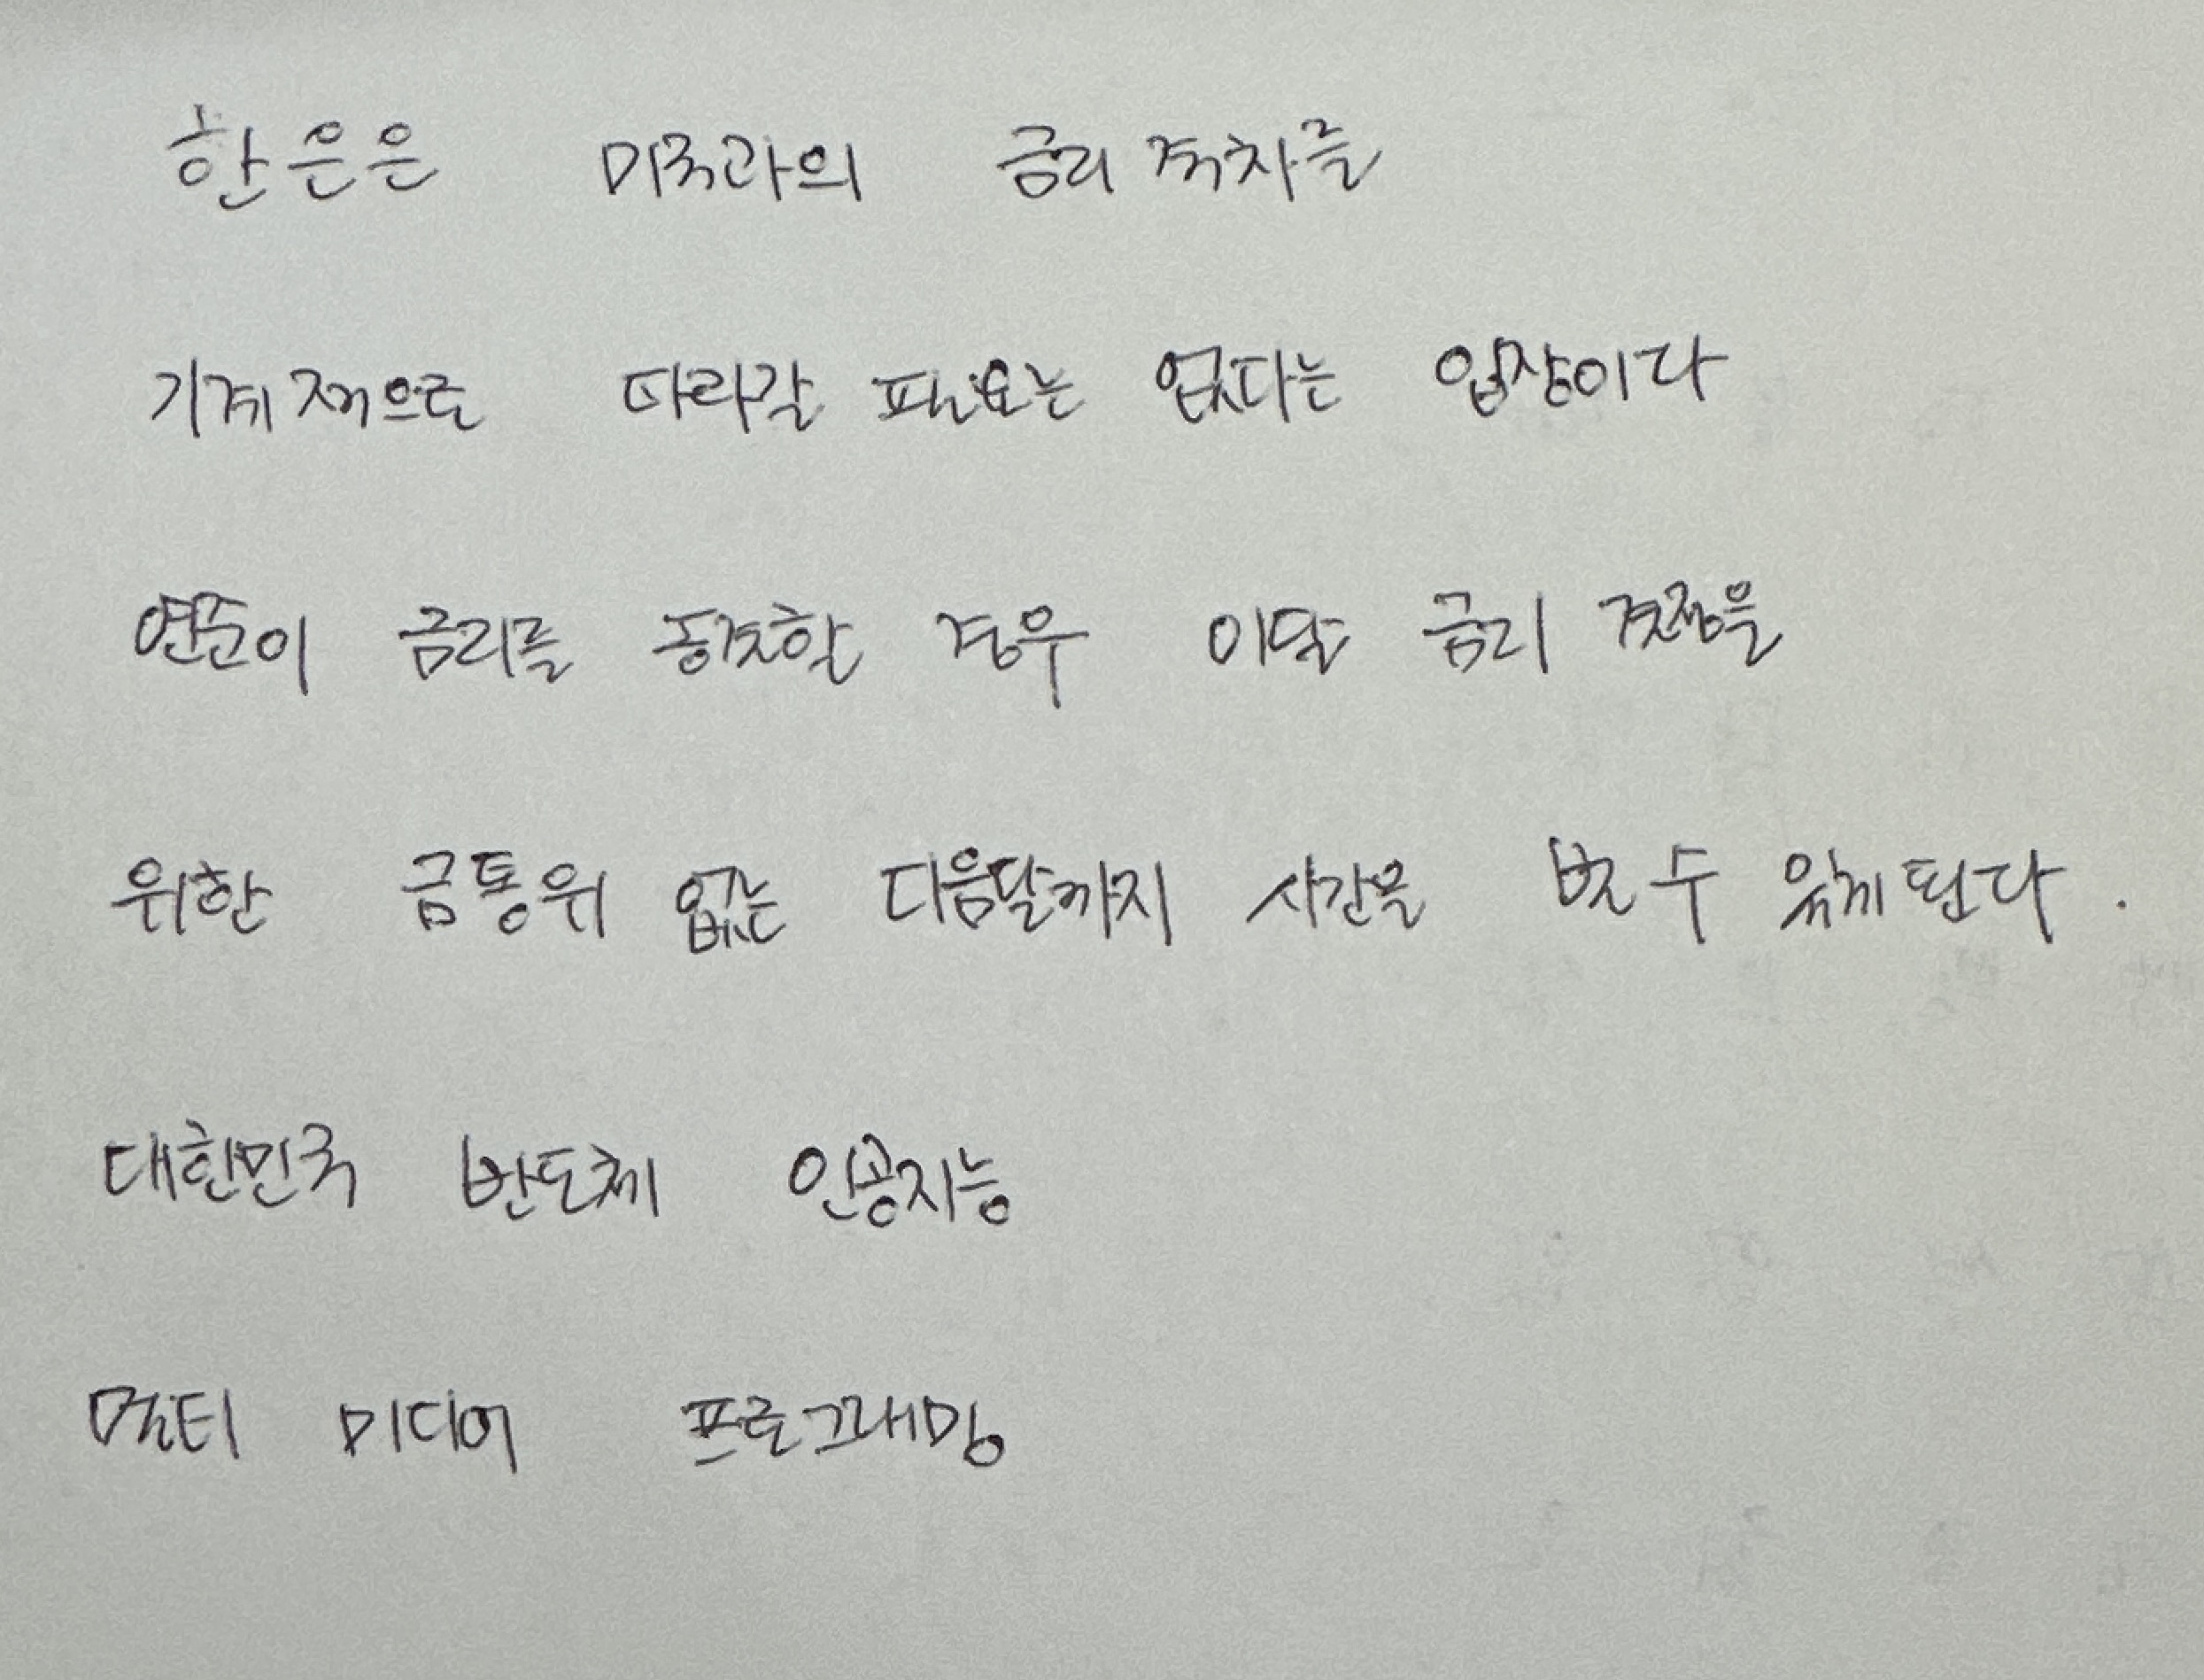 한은은 미국과의 금리 격차를
기계적으로 따라갈 필요는 없다는 입장이다
연준이 금리를 동결할 경우 이달 금리 결정을
위한 금통위 없는 다음달까지 시간을 벌 수 있게 된다.
대한민국 반도체 인공지능
멀티 미디어 프로그래밍